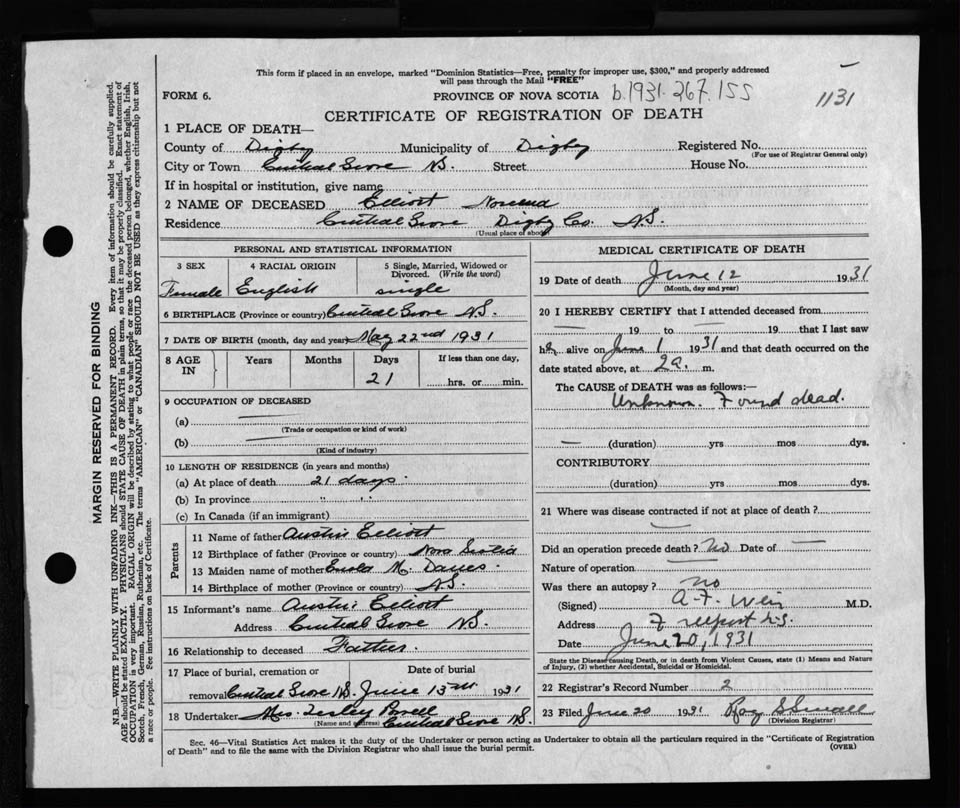 This form if placed in an envelope, marked "Dominion Statistics—Free, penalty for improper use, $300," and properly addressed
will pass through the Mail "FREE"
FORM 6. PROVINCE OF NOVA SCOTIA b.1931.267.155 1131
CERTIFICATE OF REGISTRATION OF DEATH
1 PLACE OF DEATH—
County of Digby Municipality of Digby Registered No.
(For use of Registrar General only)
City or Town Central Grove N.S. Street House No.
If in hospital or institution, give name
2 NAME OF DECEASED Elliott
Residence Central Grove Digby Co. N.S.
(Usual place of abode)
PERSONAL AND STATISTICAL INFORMATION
3 SEX 4 RACIAL ORIGIN 5 Single, Married, Widowed or
Divorced. (Write the word)
Female English single
6 BIRTHPLACE (Province or country) Central Grove N.S.
7 DATE OF BIRTH (month, day and year) May 22nd 1931
8 AGE IN Years Months Days If less than one day,
21 hrs. or min.
9 OCCUPATION OF DECEASED
(a) —
(Trade or occupation or kind of work)
(b) —
(Kind of industry)
10 LENGTH OF RESIDENCE (in years and months)
(a) At place of death 21 days.
(b) In province " "
(c) In Canada (if an immigrant)
Parents
11 Name of father Austin Elliott
12 Birthplace of father (Province or country) Nova Scotia
13 Maiden name of mother M.
14 Birthplace of mother (Province or country) N.S.
15 Informant's name Austin Elliott
Address Central Grove N.S.
16 Relationship to deceased Father.
17 Place of burial, cremation or Date of burial
removal Central Grove N.S. June 13th 1931
18 Undertaker Mrs. Central Grove N.S.
(Name and address)
MEDICAL CERTIFICATE OF DEATH
19 Date of death June 12 1931
(Month, day and year)
20 I HEREBY CERTIFY that I attended deceased from
— 19 to — 19 that I last saw
her alive on June 1 1931 and that death occurred on the
date stated above, at 2a. m.
The CAUSE of DEATH was as follows:—
Unknown. Found dead.
— (duration) yrs mos dys.
CONTRIBUTORY
(duration) yrs mos dys.
21 Where was disease contracted if not at place of death?
—
Did an operation precede death? No Date of —
Nature of operation —
Was there an autopsy? no
(Signed) A. F. Weir M.D.
Address Freeport N.S.
Date June 20, 1931
State the Disease causing Death, or in death from Violent Causes, state (1) Means and Nature
of Injury, (2) whether Accidental, Suicidal or Homicidal.
22 Registrar's Record Number 2
23 Filed June 20 1931 Roy
(Division Registrar)
Sec. 46—Vital Statistics Act makes it the duty of the Undertaker or person acting as Undertaker to obtain all the particulars required in the "Certificate of Registration
of Death" and to file the same with the Division Registrar who shall issue the burial permit. (OVER)
MARGIN RESERVED FOR BINDING
N.B.—WRITE PLAINLY WITH UNFADING INK—THIS IS A PERMANENT RECORD. Every item of information should be carefully supplied.
AGE should be stated EXACTLY. PHYSICIANS should STATE CAUSE OF DEATH in plain terms, so that it may be properly classified. Exact statement of
OCCUPATION is very important. RACIAL ORIGIN will be described by stating to what people or race the deceased person belonged, whether English, Irish,
Scotch, French, German, Russian, Ruthenian, etc. The terms "AMERICAN" or "CANADIAN" SHOULD NOT BE USED as they express citizenship but not
a race or people. See instructions on back of Certificate.